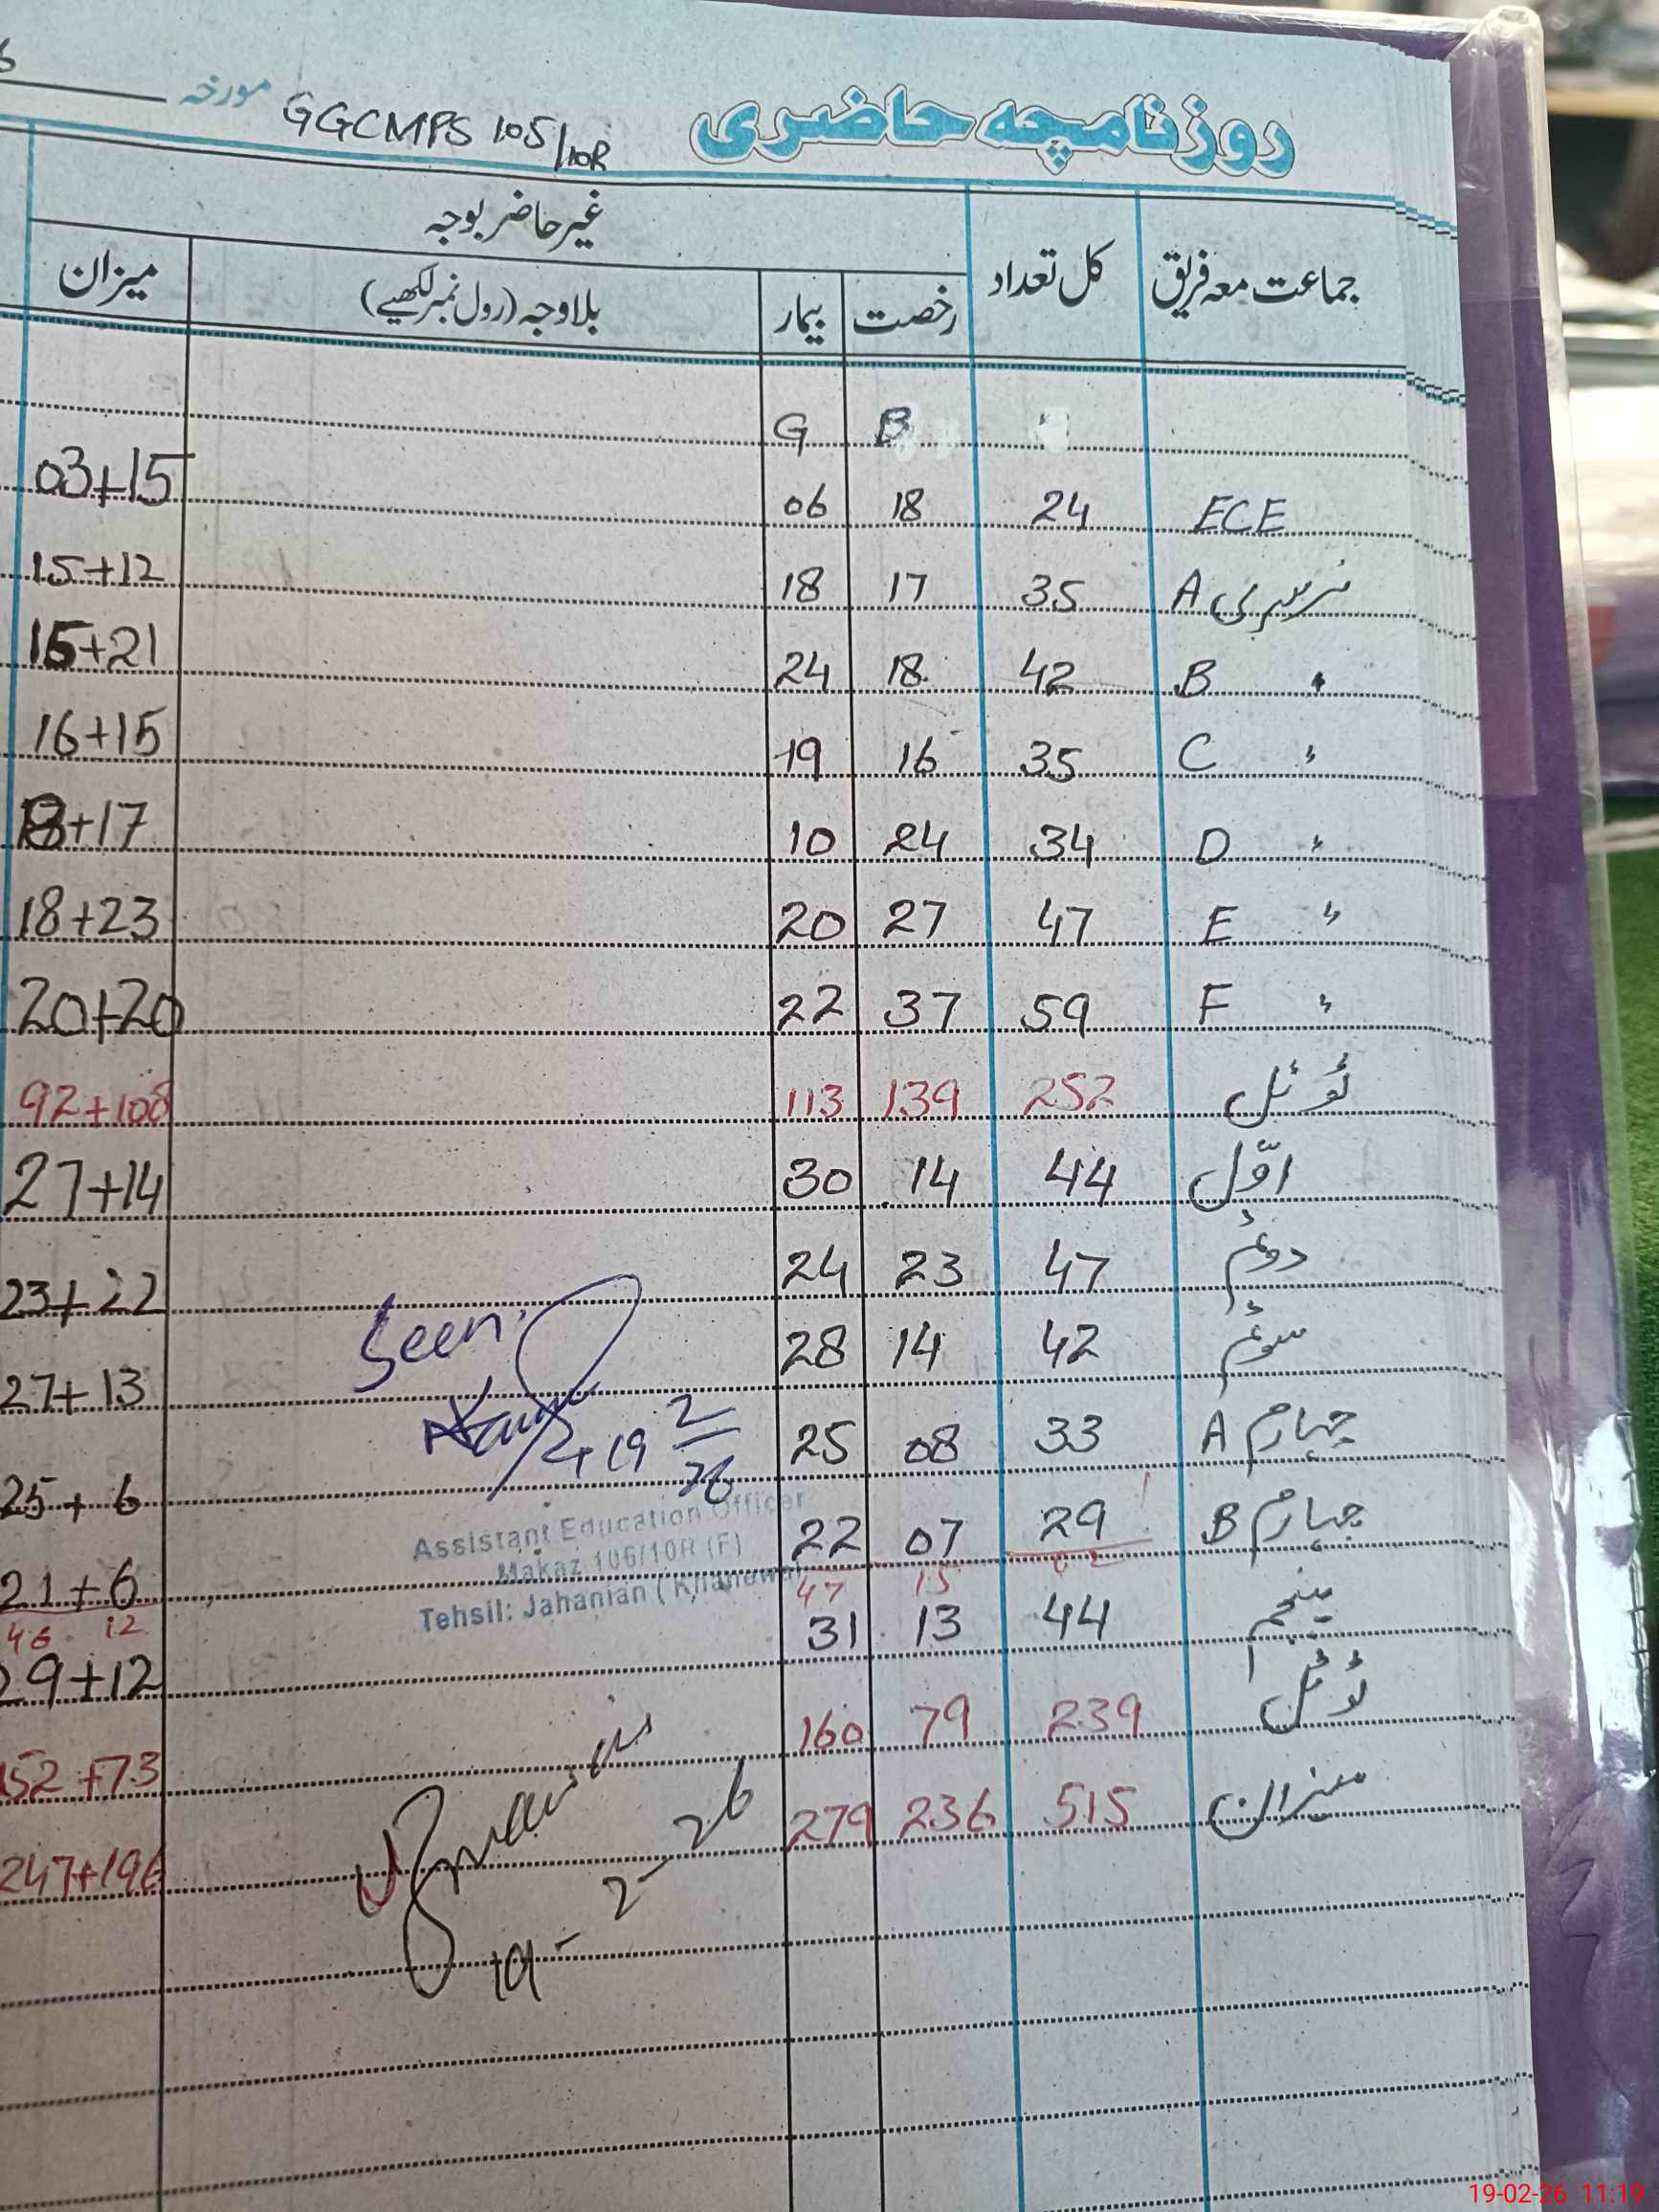 روزنامچہ حاضری GGCMPS 105/10R مورخہ
جماعت معہ فریق کل تعداد غیر حاضر بوجہ
رخصت بیمار بلاوجہ (رول نمبر لکھیے) میزان
B G
ECE 24 18 06 03+15
نرسری A 35 17 18 15+12
〃 B 42 18 24 15+21
〃 C 35 16 19 16+15
〃 D 34 24 10 +17
〃 E 47 27 20 18+23
〃 F 59 37 22 20+20
ٹوٹل 252 139 113 92+108
اوّل 44 14 30 27+14
دوئم 47 23 24 23+22
سوئم 42 14 28 27+13
چہارم A 33 08 25 25+6
چہارم B 29 07 22 21+6
62 15 47 46 12
پنجم 44 13 31 29+12
ٹوٹل 239 79 160 152+73
میزان 515 236 279 247+196
Seen
19 2/26
Assistant Education Officer
Makaz 106/10R (F)
Tehsil: Jahanian (Khanewal)
19-2-26
19-02-26 11:19